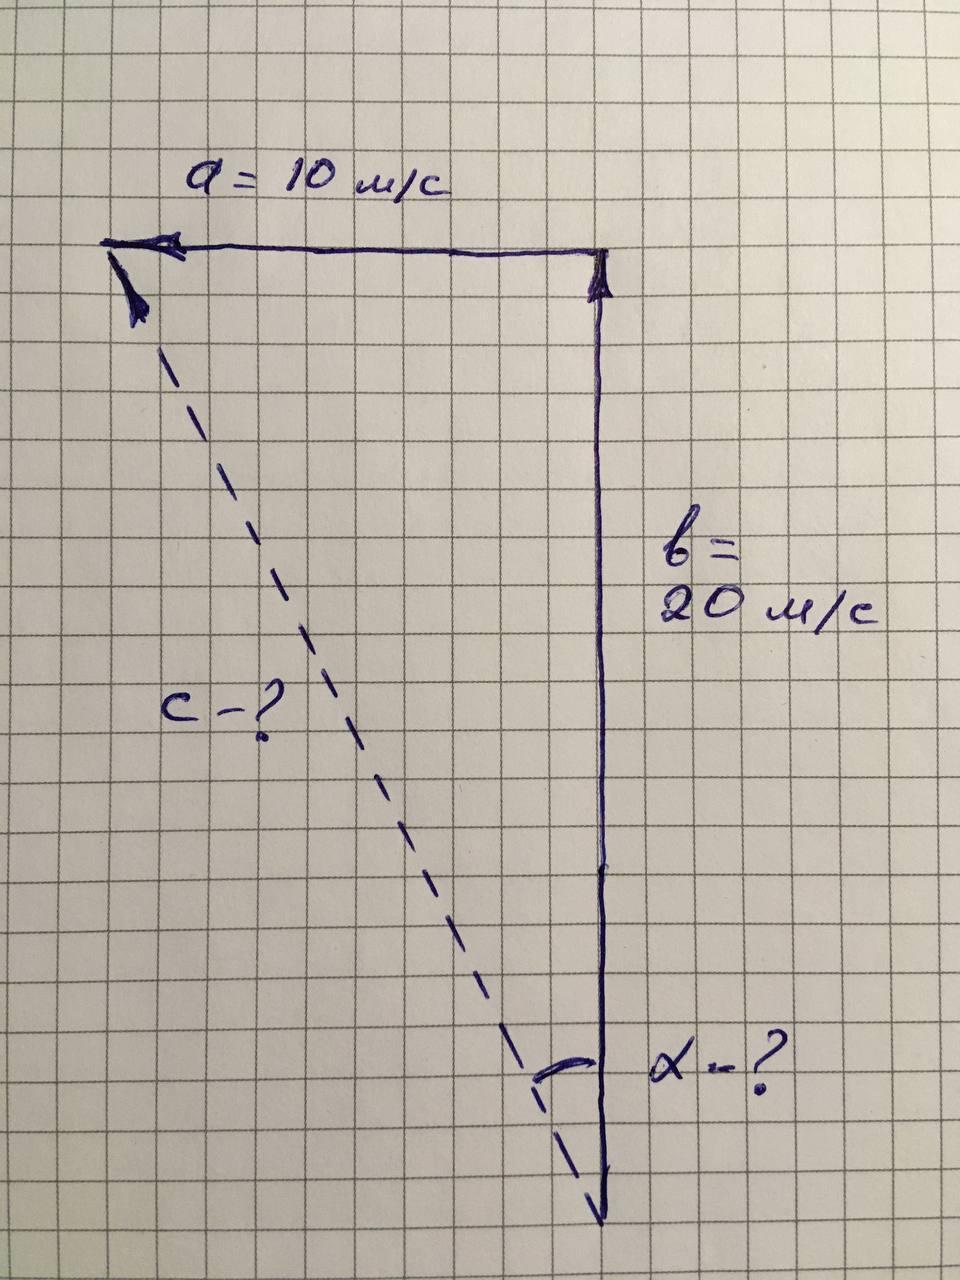 a = 10 м/с
в =
20 м/с
c - ?
α - ?